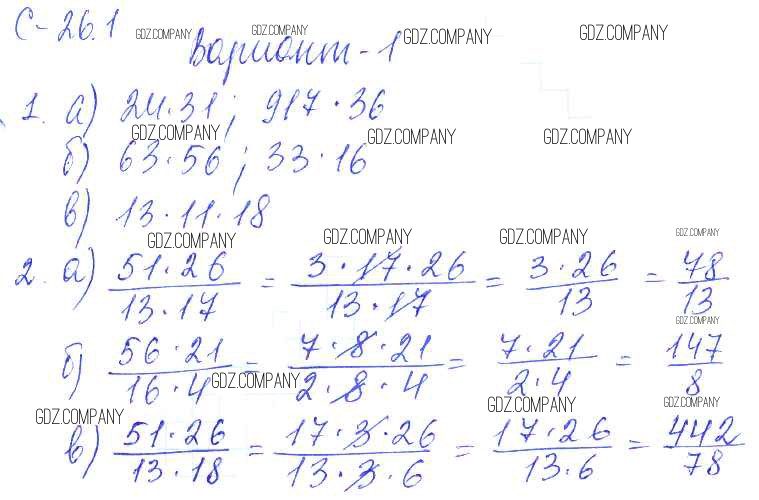 С-26.1 GDZ.COMPANY GDZ.COMPANY GDZ.COMPANY GDZ.COMPANY
Вариант-1
1. а) 24·31; 917·36
GDZ.COMPANY GDZ.COMPANY GDZ.COMPANY
б) 63·56; 33·16
в) 13·11·18
GDZ.COMPANY GDZ.COMPANY GDZ.COMPANY GDZ.COMPANY
2. а) 51·26/13·17 = 3·17·26/13·17 = 3·26/13 = 78/13
GDZ.COMPANY
б) 56·21/16·4 = 7·8·21/2·8·4 = 7·21/2·4 = 147/8
GDZ.COMPANY
GDZ.COMPANY GDZ.COMPANY GDZ.COMPANY
в) 51·26/13·18 = 17·3·26/13·3·6 = 17·26/13·6 = 442/78